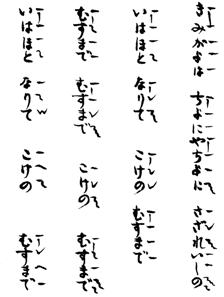 きみがよは ちよにやちよに さざれいしの
いはほと なりて こけの むすまで
むすまで むすまで こけの むすまで
いはほと なりて こけの むすまで